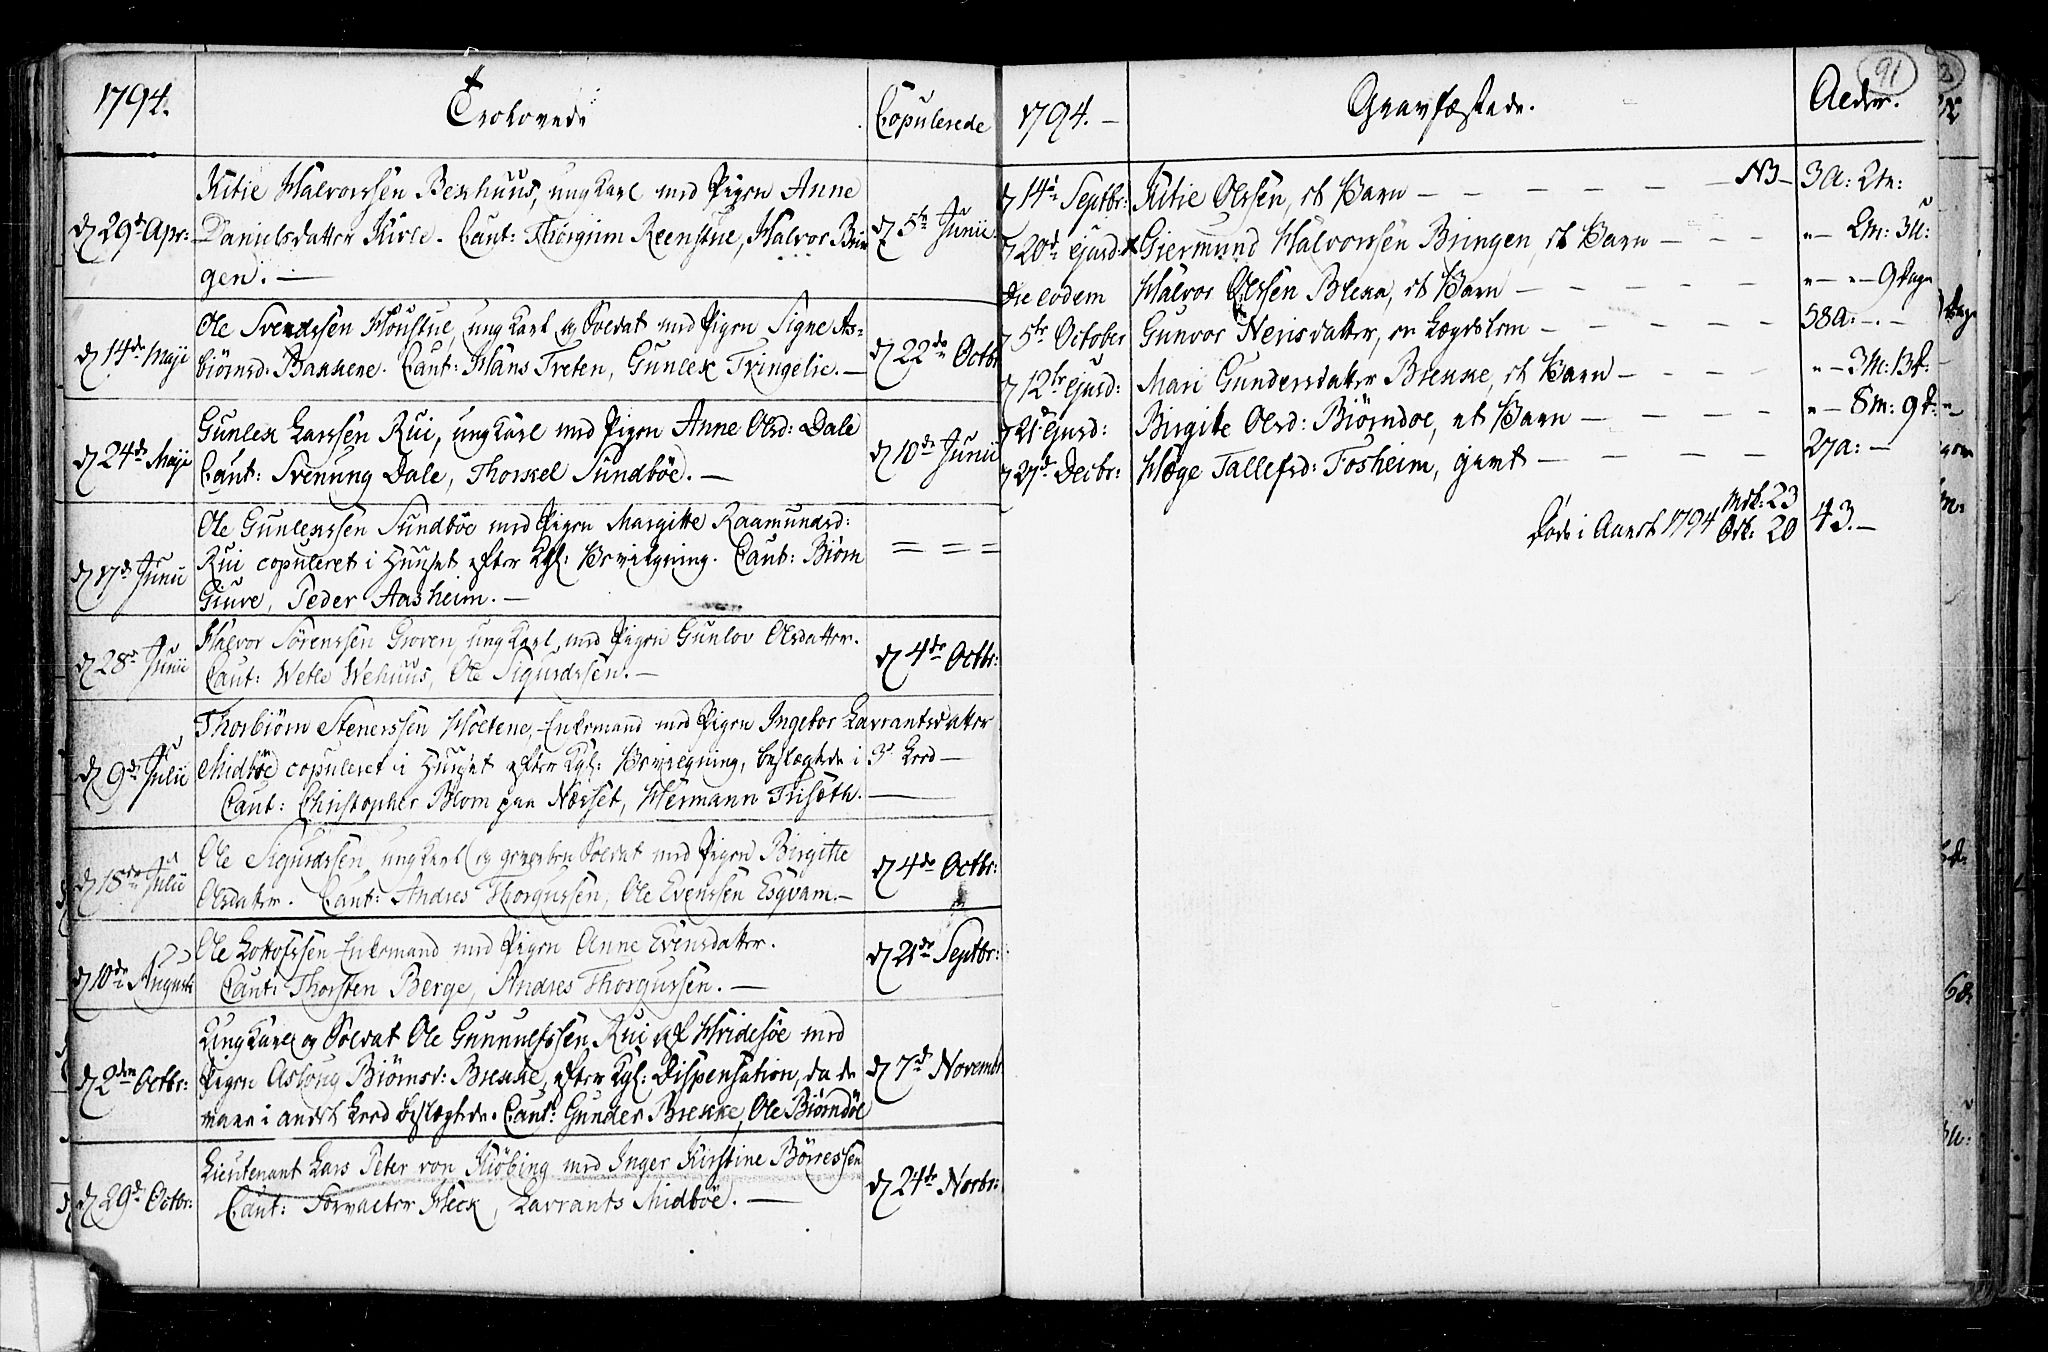 1794.
Trolovede
Copulerede
d 29d Apr:
Kitie Halvorssén Bekhuus, ung Karl med Pigen Anne
Danielsdatter Kirle. Caut: Thorgrim Reenstue, Halvor Brin
gen. —
d 5te Junii
d 14de Maji
Ole Svendssén Houstue, ung Karl og Soldat med Pigen Signe As-
biörnsd: Bakkene. Caut: Hans Treten, Gunlek Tringelie. —
d 22de Octbr
d 24de Maji
Gunlek Larssén Rui, ung Karl med Pigen Anne Olsd: Dale
Caut: Svenung Dale, Thorkel Sundböe. —
d 10de Junii
d 17de Junii
Ole Gunlekssén Sundböe med Pigen Margitte Raamundsd:
Rui copuleret i Huuset efter Kgl: Bevilgning. Caut: Biörn
Giuve, Peder Aasheim. —
d 28de Junii
Halvor Sörenssén Groven, ung Karl, med Pigen Gunlov Olsdatter.
Caut: Wetle Wehuus, Ole Sigurdssén. —
d 4de Octbr:
d 9de Julii
Thorbiörn Stenerssén Holtene, Enkemand med Pigen Ingebor Lavrantsdatter
Midböe copuleret i Huuset efter Kgl: Bevilgning, beslægtede i 3d Leed —
Caut: Christopher Blom paa Næset, Hermann Trisæth. —
d 18de Julii
Ole Sigurdssén, ung Karl og geworben Soldat med Pigen Birgitte
Olsdatter. Caut: Andres Thorgussén, Ole Evenssén Esqvam. —
d 4de Octbr:
d 10de Augusti
Ole Lottofssén Enkemand med Pigen Anne Evensdatter.
Caut: Thorsten Berge, Andres Thorgussén. —
d 21de Septbr:
d 2den Octbr:
Ung Karl og Soldat Ole Gunnulfssén Rui af Hvidesöe med
Pigen Aslong Biörnsd: Brekke, efter Kgl: Dispensation, da de
vare i andet Leed beslægtede. Caut: Gunder Brekke, Ole Biörndöl
d 7d Novembr
d 29d Octbr:
Lieutenant Lars Peter von Kiöbing med Inger Kirstine Börressén
Caut: Forvalter Heck, Lavrants Midböe. —
d 24de Novbr:
91
1794. —
Gravfæstede.
Alder.
d 14de Septbr: Kitie Olssén, et Barn — — — — — — NB — 3a: 2m:
d 20de ejusd: Giermund Halvorssén Bringen, et Barn — — — " — 2m: 3u:
Die eodem Halvor Olssén Bleka, et Barn — — — — — " — " — 9 dage
d 5te October Gunvor Nerisdatter, en Lægdslem — — — — — 58a: — . —
d 12te ejusd: Mari Gundersdatter Brekke, et Barn — — — — " — 3m: 13d:
d 21d ejusd: Birgite Olsd: Biörndöe, et Barn — — — — " — 8m: 9d:
d 27d Decbr: Hæge Tallefsd: Fosheim, gamt — — — — 27a: —
Döde i Aaret 1794 Mdk: 23
Qvk: 20
43. —